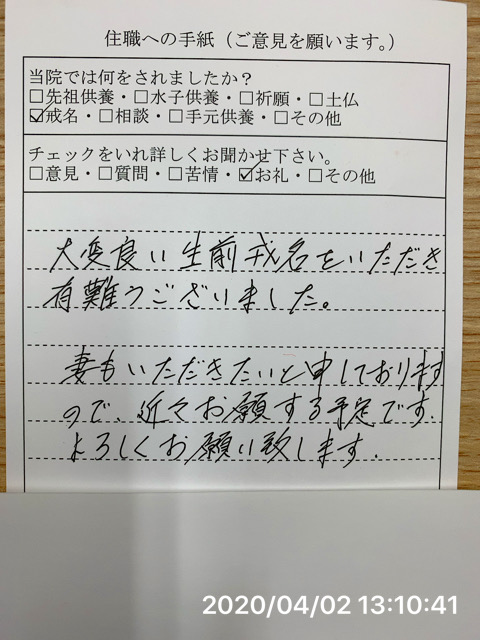 住職への手紙（ご意見を願います。）
当院では何をされましたか？
□先祖供養・□水子供養・□祈願・□土仏
☑戒名・□相談・□手元供養・□その他
チェックをいれ詳しくお聞かせ下さい。
□意見・□質問・□苦情・☑お礼・□その他
大変良い生前戒名をいただき
有難うございました。
妻もいただきたいと申しております
ので、近々お願する予定です.
よろしくお願い致します.
2020/04/02 13:10:41